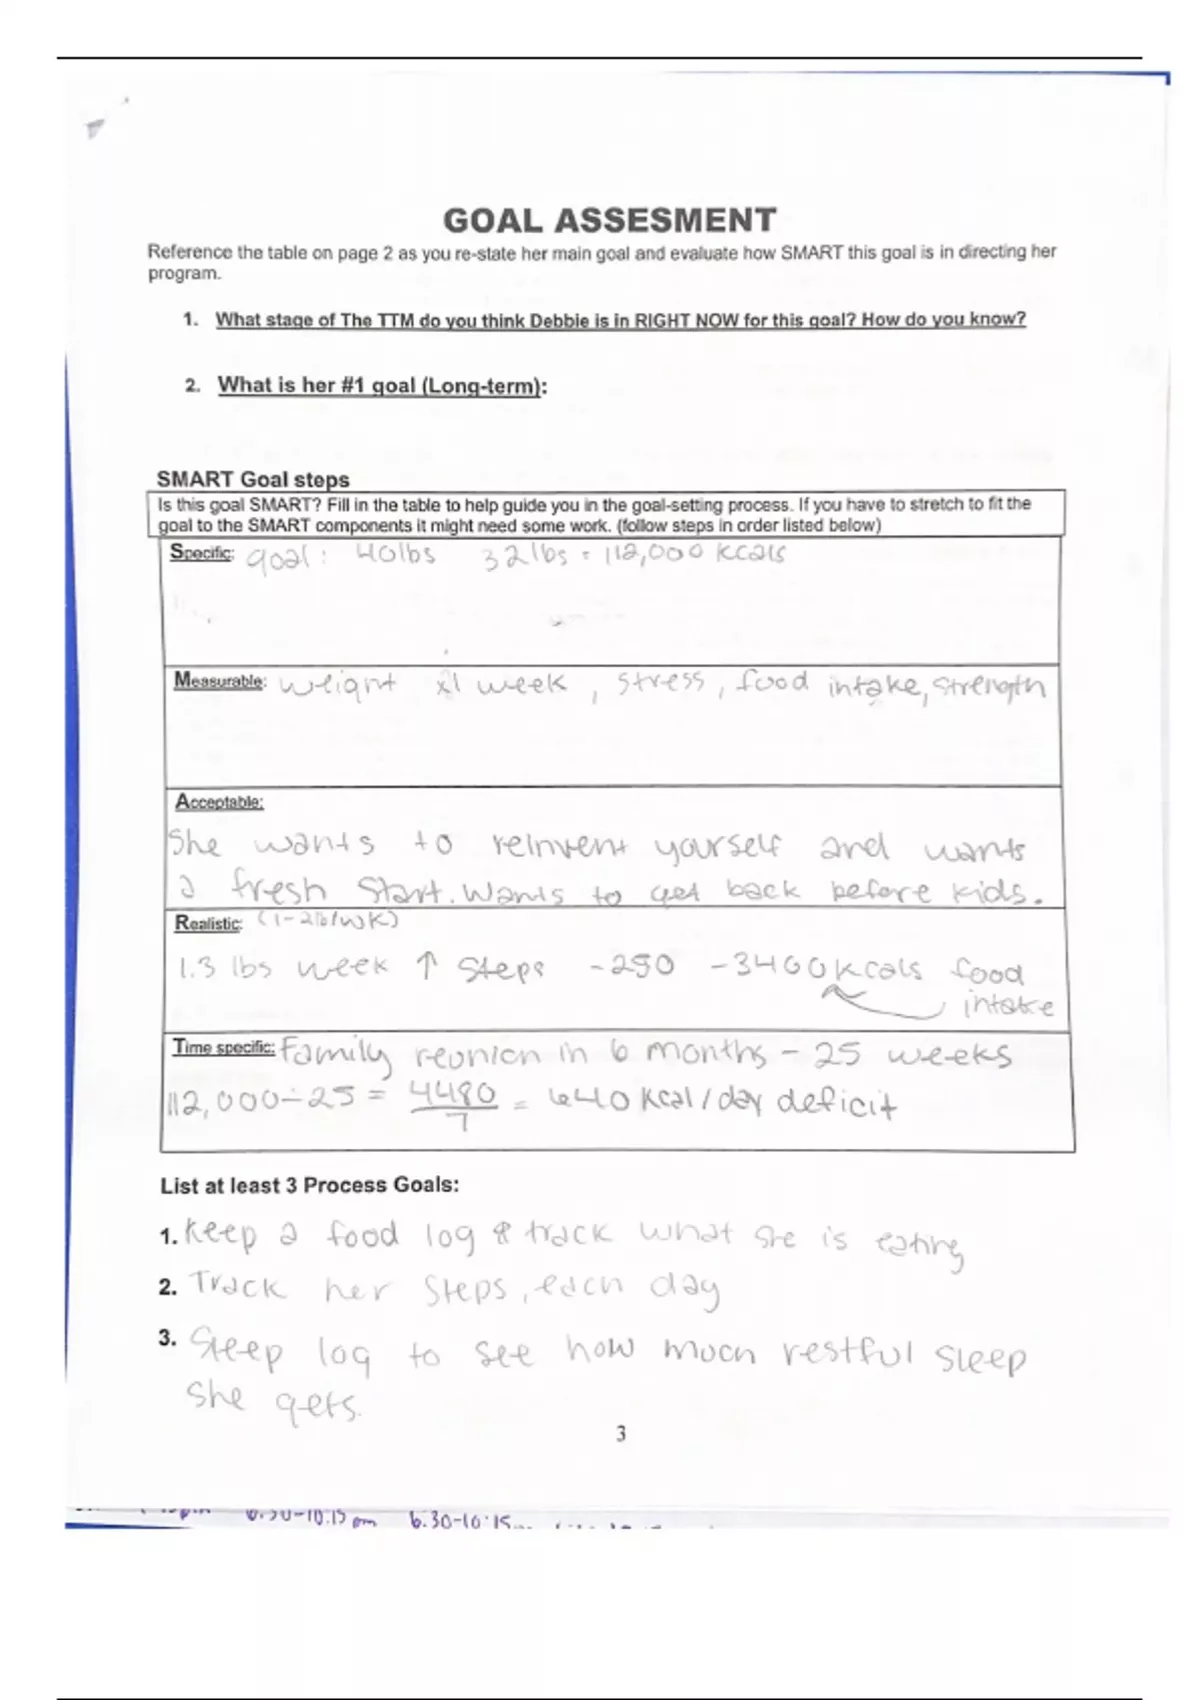 GOAL ASSESMENT
Reference the table on page 2 as you re-state her main goal and evaluate how SMART this goal is in directing her
program.
1. What stage of The TTM do you think Debbie is in RIGHT NOW for this goal? How do you know?
2. What is her #1 goal (Long-term):
SMART Goal steps
Is this goal SMART? Fill in the table to help guide you in the goal-setting process. If you have to stretch to fit the
goal to the SMART components it might need some work. (follow steps in order listed below)
Specific: goal: 40lbs 32lbs = 112,000 kcals
Measurable: weight x1 week, stress, food intake, strength
Acceptable:
She wants to reinvent yourself and wants
a fresh start. Wants to get back before kids.
Realistic: (1-2lb/wk)
1.3 lbs week ↑ steps -250 -3400kcals food
intake
Time specific: Family reunion in 6 months - 25 weeks
112,000÷25 = 4480 = 640 kcal/day deficit
7
List at least 3 Process Goals:
1. Keep a food log & track what she is eating
2. Track her steps, each day
3. Sleep log to see how much restful sleep
she gets.
3
6:30-10:15 pm 6:30-10:15